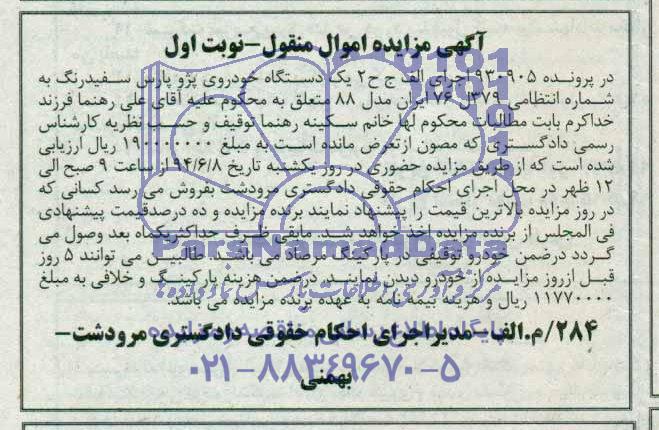 آگهی مزایده اموال منقول-نوبت اول
در پرونده ۹۳۰۹۰۵ اجرای الف ج ح۲ یک دستگاه خودروی پژو پارس سفیدرنگ به
شماره انتظامی ۳۷۹ل۷۶ ایران مدل ۸۸ متعلق به محکوم علیه آقای علی رهنما فرزند
خداکرم بابت مطالبات محکوم لها خانم سکینه رهنما توقیف و حسب نظریه کارشناس
رسمی دادگستری که مصون ازتعرض مانده است به مبلغ ۱۹۰۰۰۰۰۰۰ ریال ارزیابی
شده است که از طریق مزایده حضوری در روز یکشنبه تاریخ ۹۴/۶/۸ از ساعت ۹ صبح الی
۱۲ ظهر در محل اجرای احکام حقوقی دادگستری مرودشت بفروش می رسد کسانی که
در روز مزایده بالاترین قیمت را پیشنهاد نمایند برنده مزایده و ده درصدقیمت پیشنهادی
فی المجلس از برنده مزایده اخذ خواهد شد. مابقی ظرف حداکثریکماه بعد وصول می
گردد درضمن خودرو توقیفی در پارکینگ مرصاد می باشد. طالبین می توانند ۵ روز
قبل ازروز مزایده از خودرو دیدن نمایند. درضمن هزینه پارکینگ و خلافی به مبلغ
۱۱۷۷۰۰۰۰ ریال و هزینه بیمه نامه به عهده برنده مزایده می باشد.
۲۸۴/م.الف-مدیر اجرای احکام حقوقی دادگستری مرودشت-
بهمنی
ParsNamadData
۰۲۱-۸۸۳۴۹۶۷۰-۵